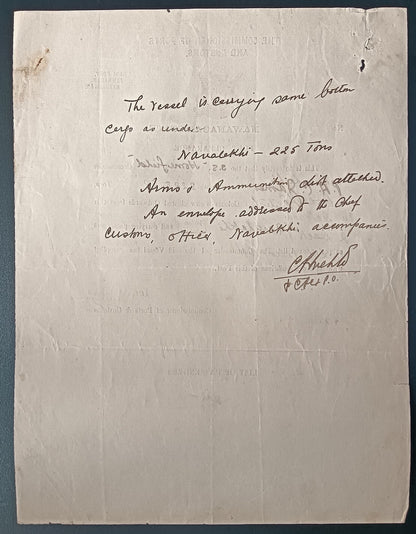 The vessel is carrying same bottom
cargo as under
Navalekhi — 225 Tons
Arms & Ammunition list attached.
An envelope addressed to the Chief
Customs, officer, Navalekhi accompanies.